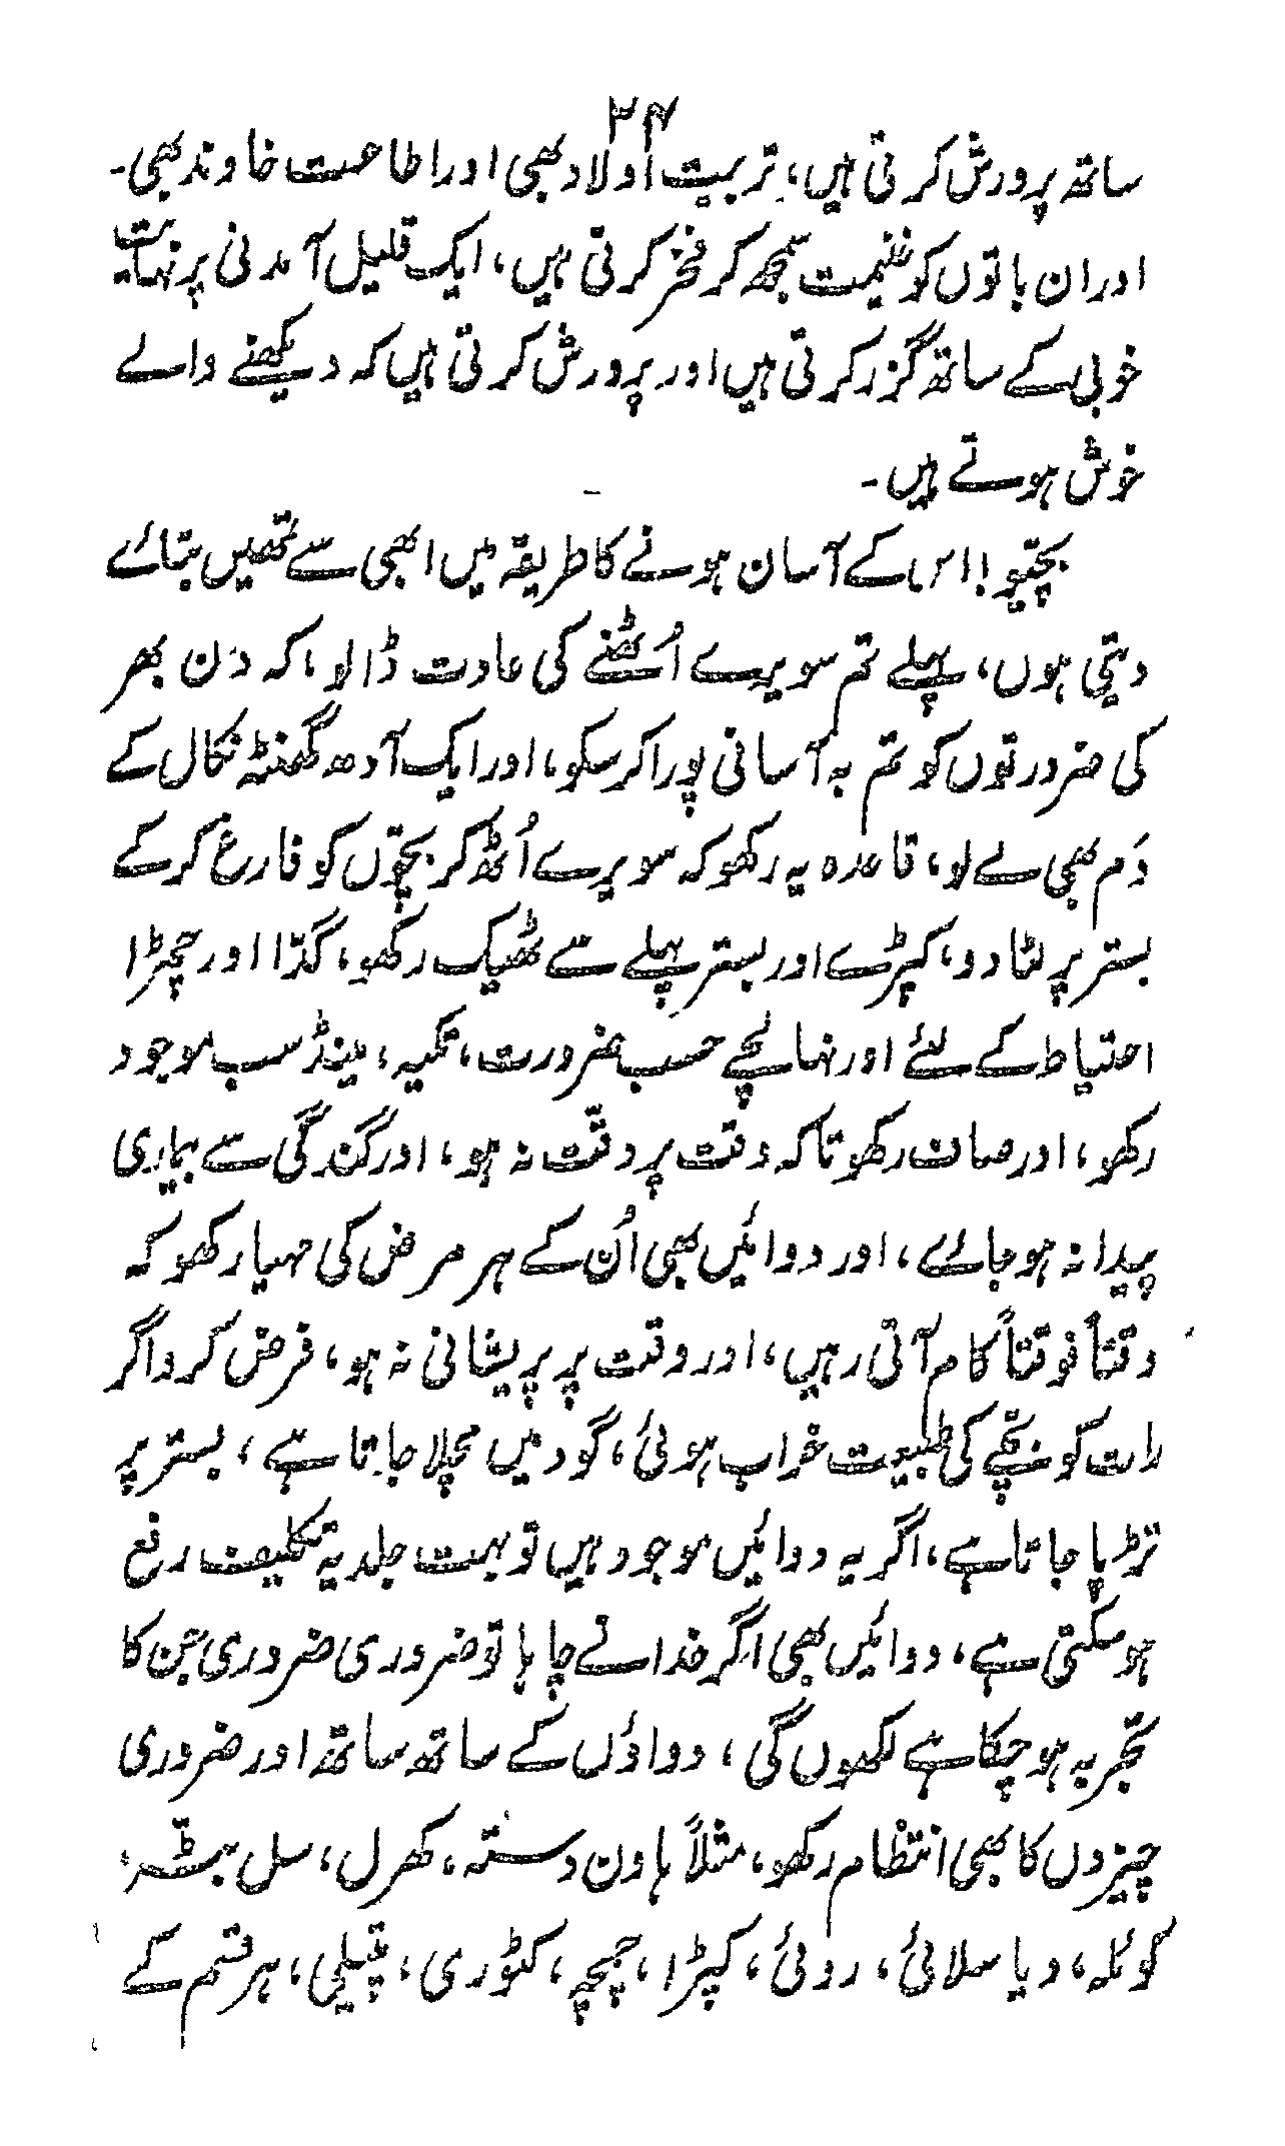 ۲۴
ساتھ پرورش کرتی ہیں، تربیت اولاد بھی اور اطاعت خاوند بھی۔
اور ان باتوں کو غنیمت سمجھ کر فخر کرتی ہیں، ایک قلیل آمدنی پر نہایت
خوبی کے ساتھ گزر کرتی ہیں اور پرورش کرتی ہیں کہ دیکھنے والے
خوش ہوتے ہیں۔
بچیو! اس کے آسان ہونے کا طریقہ میں ابھی سے تمھیں بتائے
دیتی ہوں، پہلے تم سویرے اُٹھنے کی عادت ڈالو، کہ دن بھر
کی ضرورتوں کو تم بہ آسانی پورا کر سکو، اور ایک آدھ گھنٹہ نکال کے
دَم بھی لے لو، قاعدہ یہ رکھو کہ سویرے اُٹھ کر بچّوں کو فارغ کر کے
بستر پر لٹا دو، کپڑے اور بستر پہلے سے ٹھیک رکھو، گدّا اور چمڑا
احتیاط کے لئے اور نہالچے حسب ضرورت، تکیہ، مینڈ سب موجود
رکھو، اور صاف رکھو تاکہ وقت پر دقّت نہ ہو، اور گندگی سے بیماری
پیدا نہ ہو جائے، اور دوائیں بھی اُن کے ہر مرض کی مہیا رکھو کہ
وقتاً فوقتاً کام آتی رہیں، اور وقت پر پریشانی نہ ہو، فرض کرو اگر
رات کو بچّے کی طبیعت خراب ہوئی، گود میں مچلا جاتا ہے، بستر پر
تڑپا جاتا ہے، اگر یہ دوائیں موجود ہیں تو بہت جلد یہ تکلیف رفع
ہو سکتی ہے، دوائیں بھی اگر خدا نے چاہا تو ضروری ضروری جن کا
تجربہ ہو چکا ہے لکھوں گی، دواؤں کے ساتھ ساتھ اور ضروری
چیزوں کا بھی انتظام رکھو، مثلاً ہاون دستہ، کھرل، سل بٹّہ،
کوئلہ، دیا سلائی، روئی، کپڑا، چمچہ، کٹوری، پتیلی، ہر قسم کے